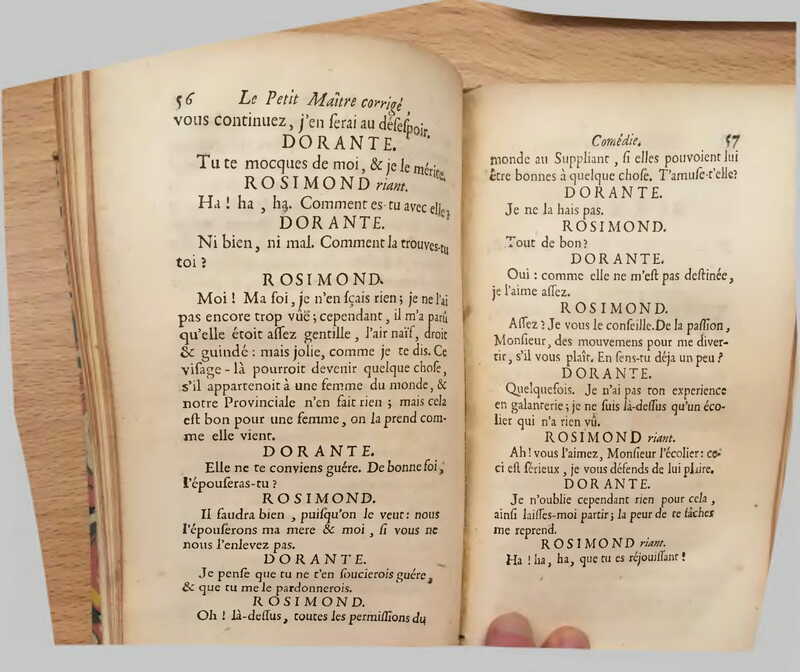 56 Le Petit Maître corrigé,
vous continuez, j'en ſerai au déſeſpoir.
DORANTE.
Tu te mocques de moi, & je le mérite.
ROSIMOND riant.
Ha ! ha, ha. Comment es-tu avec elle?
DORANTE.
Ni bien, ni mal. Comment la trouves-tu
toi ?
ROSIMOND.
Moi ! Ma foi, je n'en ſçais rien; je ne l'ai
pas encore trop vûë; cependant, il m'a parû
qu'elle étoit aſſez gentille, l'air naïf, droit
& guindé : mais jolie, comme je te dis. Ce
viſage-là pourroit devenir quelque choſe,
s'il appartenoit à une femme du monde, &
notre Provinciale n'en fait rien; mais cela
eſt bon pour une femme, on la prend com-
me elle vient.
DORANTE.
Elle ne te conviens guére. De bonne foi,
l'épouſeras-tu ?
ROSIMOND.
Il faudra bien, puiſqu'on le veut: nous
l'épouſerons ma mere & moi, ſi vous ne
nous l'enlevez pas.
DORANTE.
Je penſe que tu ne t'en ſoucierois guére,
& que tu me le pardonnerois.
ROSIMOND.
Oh ! là-deſſus, toutes les permiſſions du
Comédie. 57
monde au Suppliant, ſi elles pouvoient lui
être bonnes à quelque choſe. T'amuſe-t'elle?
DORANTE.
Je ne la hais pas.
ROSIMOND.
Tout de bon?
DORANTE.
Oui : comme elle ne m'eſt pas deſtinée,
je l'aime aſſez.
ROSIMOND.
Aſſez ? Je vous le conſeille. De la paſſion,
Monſieur, des mouvemens pour me diver-
tir, s'il vous plaît. En ſens-tu déja un peu ?
DORANTE.
Quelquefois. Je n'ai pas ton experience
en galanterie; je ne ſuis là-deſſus qu'un éco-
lier qui n'a rien vû.
ROSIMOND riant.
Ah! vous l'aimez, Monſieur l'écolier: ce-
ci eſt ſérieux, je vous défends de lui plaire.
DORANTE.
Je n'oublie cependant rien pour cela,
ainſi laiſſes-moi partir; la peur de te fâcher
me reprend.
ROSIMOND riant.
Ha ! ha, ha, que tu es réjouiſſant !